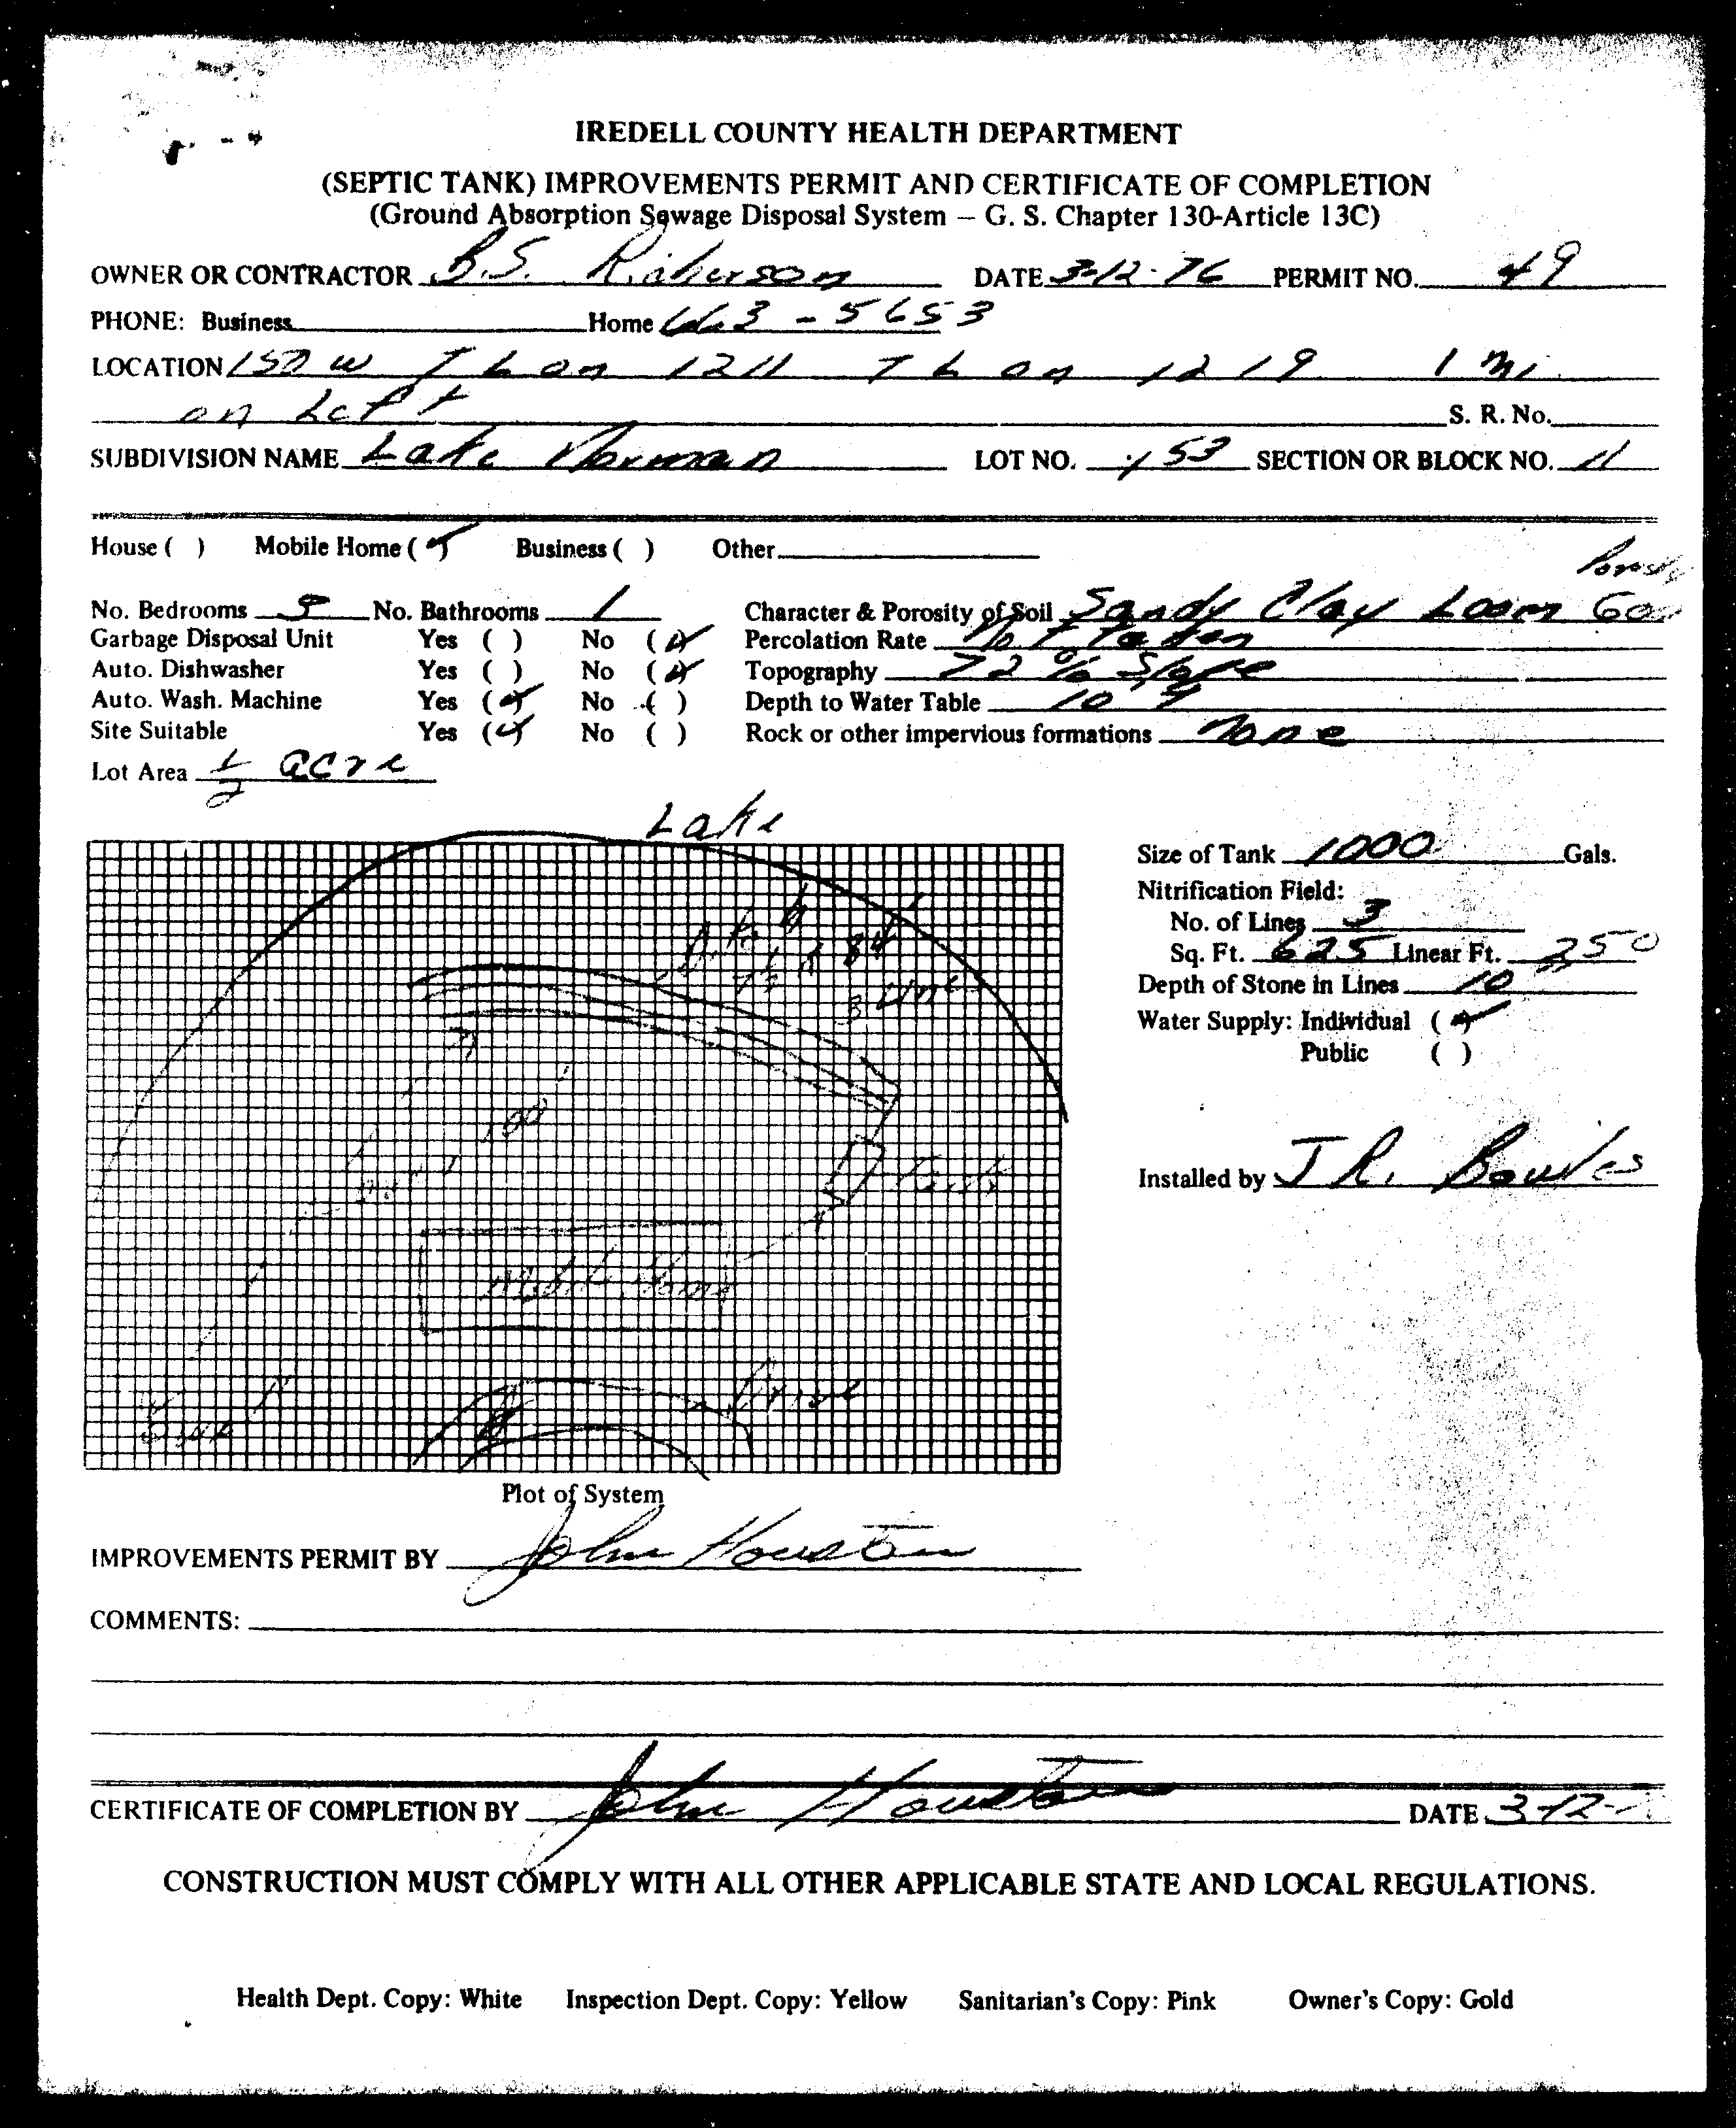 IREDELL COUNTY HEALTH DEPARTMENT
(SEPTIC TANK) IMPROVEMENTS PERMIT AND CERTIFICATE OF COMPLETION
(Ground Absorption Sewage Disposal System – G. S. Chapter 130-Article 13C)
OWNER OR CONTRACTOR B.S. DATE 3-12-76 PERMIT NO. 49
PHONE: Business Home 663-5653
LOCATION 150 W T L on 1211 T L on 1219 1 mi
on Left S. R. No.
SUBDIVISION NAME Lake Norman LOT NO. 153 SECTION OR BLOCK NO. 11
House ( ) Mobile Home ( ) Business ( ) Other
No. Bedrooms No. Bathrooms 1 Character & Porosity of Soil Sandy Clay Loam
Garbage Disposal Unit Yes ( ) No ( ) Percolation Rate Not Taken
Auto. Dishwasher Yes ( ) No ( ) Topography 72 % Slope
Auto. Wash. Machine Yes ( ) No ( ) Depth to Water Table 10'
Site Suitable Yes ( ) No ( ) Rock or other impervious formations None
Lot Area 1/2 acre
Lake
Size of Tank 1000 Gals.
Nitrification Field:
No. of Lines 3
Sq. Ft. 625 Linear Ft. 250
Depth of Stone in Lines 10
Water Supply: Individual ( )
Public ( )
84'
3 Line
100'
Installed by J R. Bowles
Tank
Mobile Home
Drive
Plot of System
IMPROVEMENTS PERMIT BY John Houston
COMMENTS:
CERTIFICATE OF COMPLETION BY John Houston DATE 3-12-
CONSTRUCTION MUST COMPLY WITH ALL OTHER APPLICABLE STATE AND LOCAL REGULATIONS.
Health Dept. Copy: White Inspection Dept. Copy: Yellow Sanitarian's Copy: Pink Owner's Copy: Gold